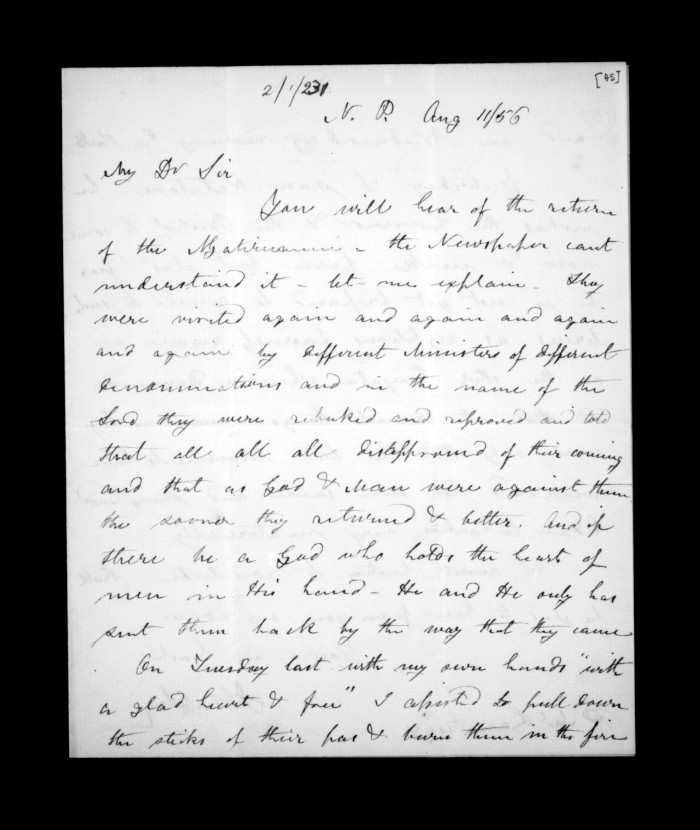 [45]
2/1/231
N. P. Aug 11/56
My Dr Sir
You will hear of the return
of the Ngatiruanui - the Newspaper cant
understand it - let me explain. They
were visited again and again and again
and again by different Ministers of different
denominations and in the name of the
Lord they were rebuked and reproved and told
that all all all disapproved of their coming
and that as God & Man were against them
the sooner they returned & better. And if
there be a God who holds the heart of
men in His hand - He and He only has
sent them back by the way that they came
On Tuesday last with my own hands "with
a glad heart & free" I assisted to pull down
the sticks of their pas & burn them in the fire